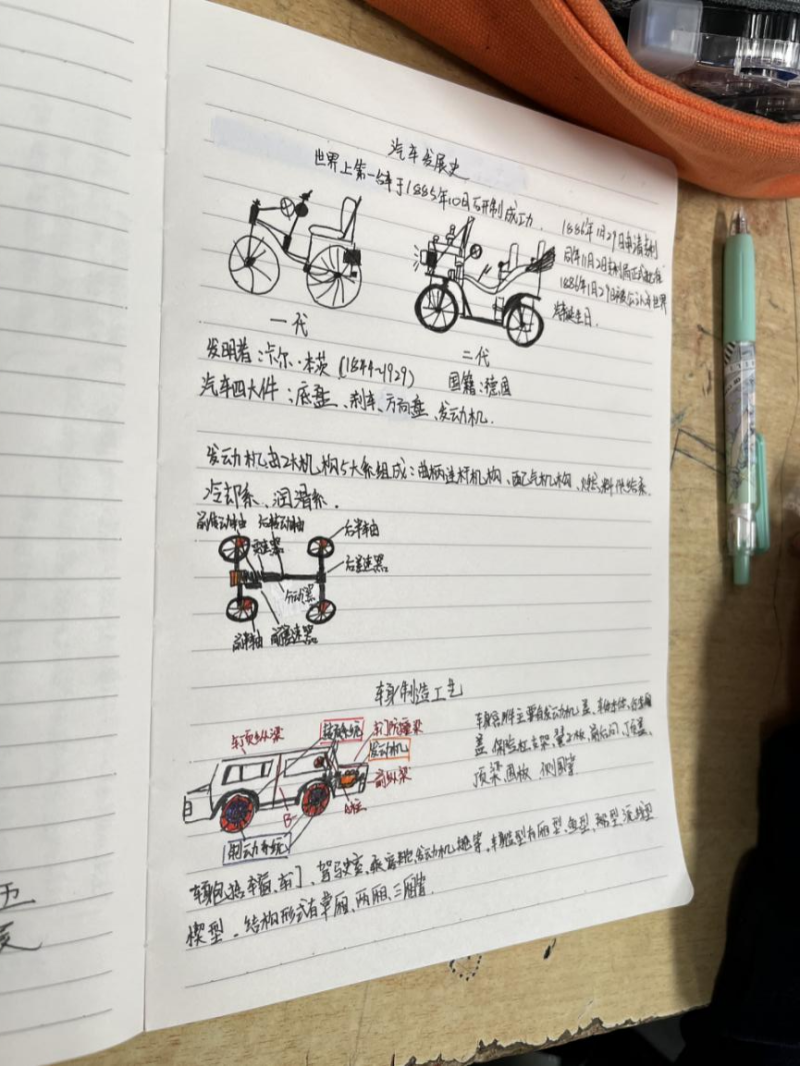 汽车发展史
世界上第一台车于1885年10月研制成功.
1886年1月29日申请专利
同年11月2日专利局正式批准
1886年1月29日被公认为世界
诞生日.
一代
二代
发明者:卡尔·本茨(1844-1929)
国籍:德国
汽车四大件:底盘、刹车、方向盘、发动机.
发动机由2大机构5大系组成:曲柄连杆机构、配气机构、燃料供给系
冷却系、润滑系.
前传动轴 后传动轴
变速器
后半轴
后差速器
分动器
前半轴 前差速器
车身制造工艺
车顶纵梁
车门防撞梁
发动机
前纵梁
B柱
A柱
制动系统
车身部件主要有发动机盖、
盖、保险杠、支架、翼子板、前后门、顶盖、
顶梁 侧围
车身包括车窗、车门、驾驶室、乘客舱、发动机
楔型.结构形式有单厢、两厢、三厢等.